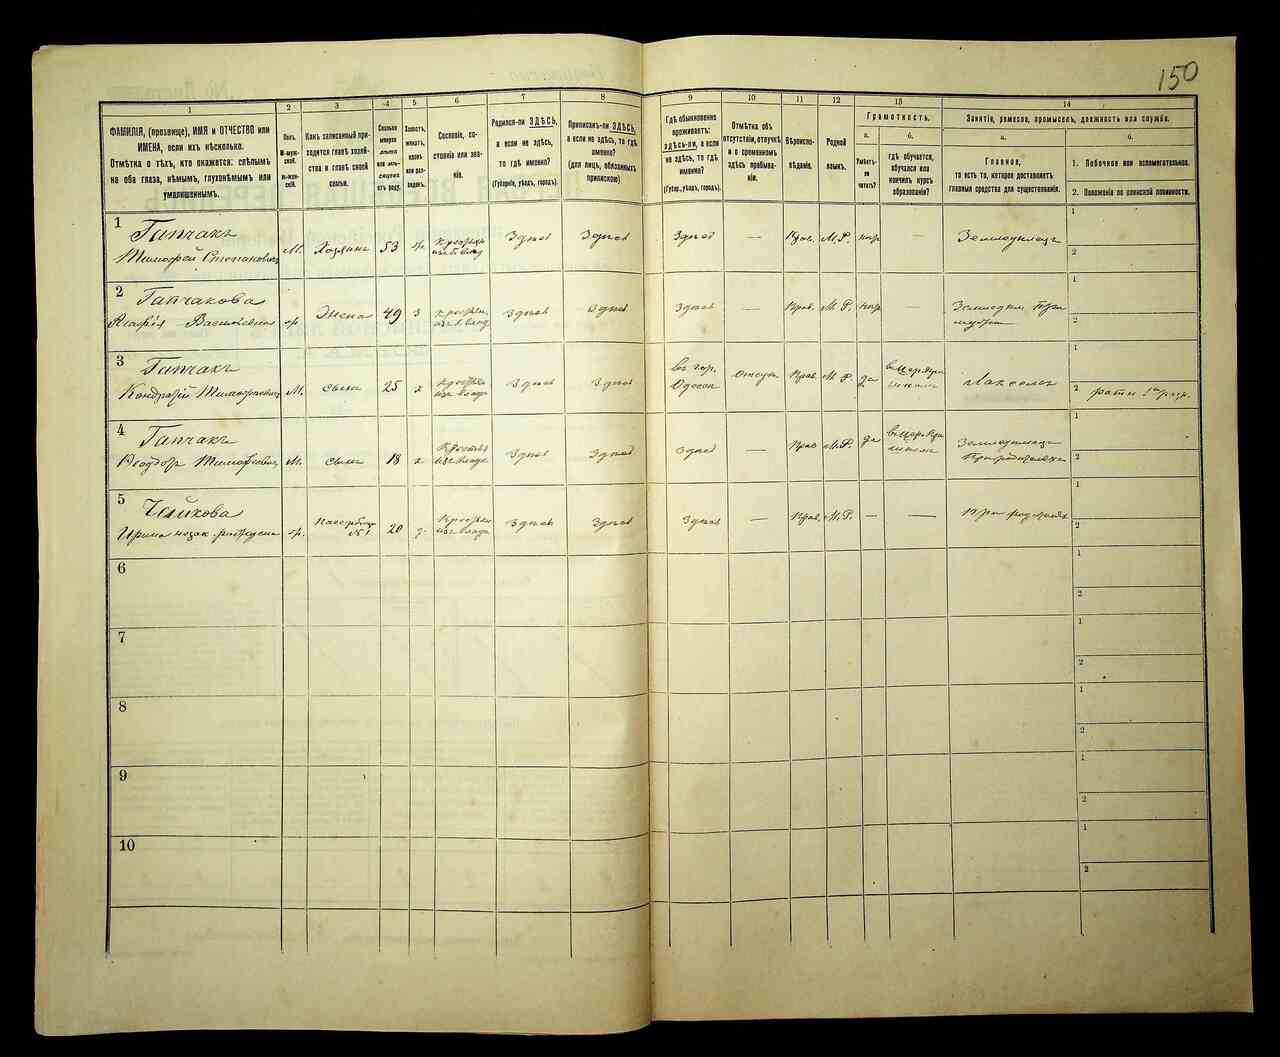 150
1
2
3
4
5
6
7
8
9
10
11
12
13
14
ФАМИЛІЯ, (прозвище), ИМЯ и ОТЧЕСТВО или
ИМЕНА, если ихъ нѣсколько.
Отмѣтка о тѣхъ, кто окажется: слѣпымъ
на оба глаза, нѣмымъ, глухонѣмымъ или
умалишеннымъ.
Полъ.
М-муж-
ской.
ж-жен-
скій.
Какъ записанный при-
ходится главѣ хозяй-
ства и главѣ своей
семьи.
Сколько
минуло
лѣтъ
или мѣ-
сяцевъ
отъ роду.
Холостъ,
женатъ,
вдовъ
или раз-
веденъ.
Сословіе, со-
стояніе или зва-
ніе.
Родился-ли ЗДѢСЬ,
а если не здѣсь,
то гдѣ именно?
(Губернія, уѣздъ, городъ).
Приписанъ-ли ЗДѢСЬ,
а если не здѣсь, то гдѣ
именно?
(для лицъ, обязанныхъ
припискою)
Гдѣ обыкновенно
проживаетъ:
здѣсь-ли, а если
не здѣсь, то гдѣ
именно?
(Губер., уѣздъ, городъ).
Отмѣтка объ
отсутствіи, отлучкѣ
и о временномъ
здѣсь пребыва-
ніи.
Вѣроиспо-
вѣданіе.
Родной
языкъ.
Грамотность.
а.
б.
Умѣетъ-
ли
читать?
гдѣ обучается,
обучался или
кончилъ курсъ
образованія?
Занятіе, ремесло, промыселъ, должность или служба.
а.
б.
Главное,
то есть то, которое доставляетъ
главныя средства для существованія.
1. Побочное или вспомогательное.
2. Положеніе по воинской повинности.
1
Гапчакъ
Тимофей Степановичъ
М.
Хозяинъ
53
Здѣсь
Здѣсь
Здѣсь
—
Прав.
М.Р.
Земледѣлецъ
1
2
2
Гапчакова
Жена
49
З
Здѣсь
Здѣсь
Здѣсь
—
Прав.
М.Р.
—
1
2
3
Гапчакъ
Кондратій Тимофѣевичъ
М.
сынъ
25
х
Здѣсь
Здѣсь
въ гор.
Одессѣ
Прав.
М.Р.
да
школѣ
1
2
4
Гапчакъ
Ѳеодоръ Тимофѣевичъ
М.
сынъ
18
х
Здѣсь
Здѣсь
Здѣсь
—
Прав
М.Р.
да
школѣ
Земледѣлецъ
1
2
5
Чайкова
Ирина
20
Здѣсь
Здѣсь
Здѣсь
—
Прав.
М.Р.
—
—
При родителяхъ
1
2
6
1
2
7
1
2
8
1
2
9
1
2
10
1
2